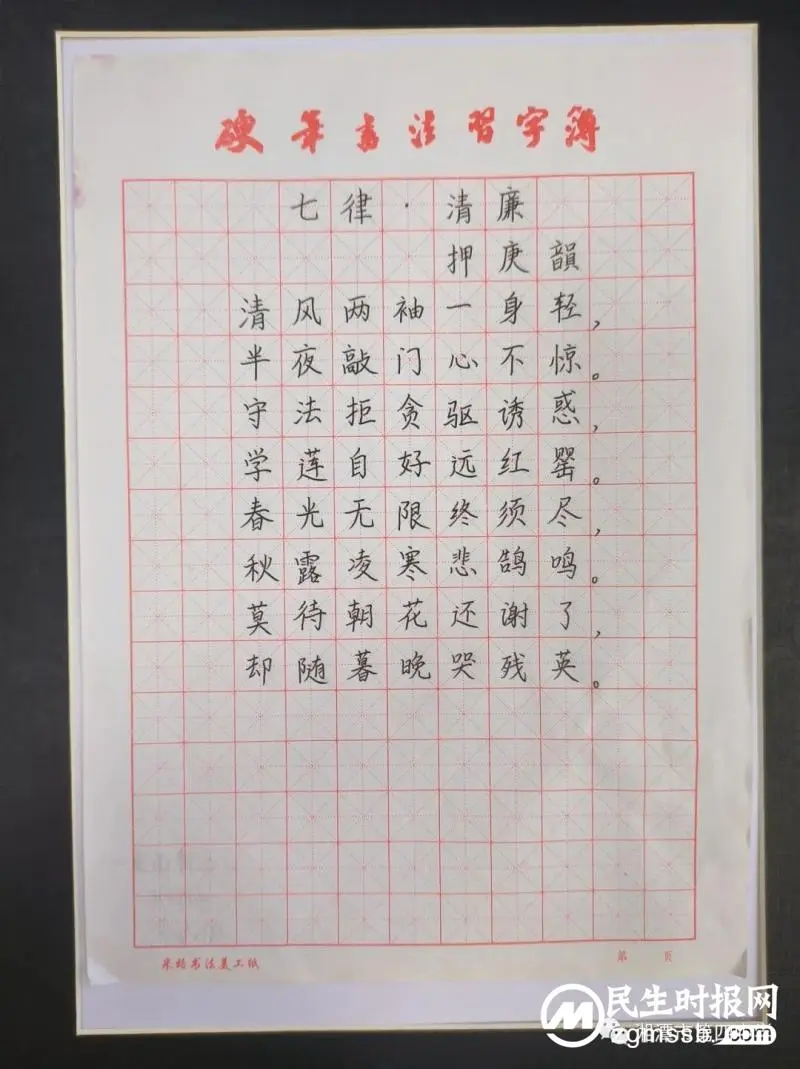 硬笔书法习字簿
七律·清廉
押庚韻
清风两袖一身轻，
半夜敲门心不惊。
守法拒贪驱诱惑，
学莲自好远红罂。
春光无限终须尽，
秋露凌寒悲鹄鸣。
莫待朝花还谢了，
却随暮晚哭残英。
米格书法美工纸
第 页
民生时报网